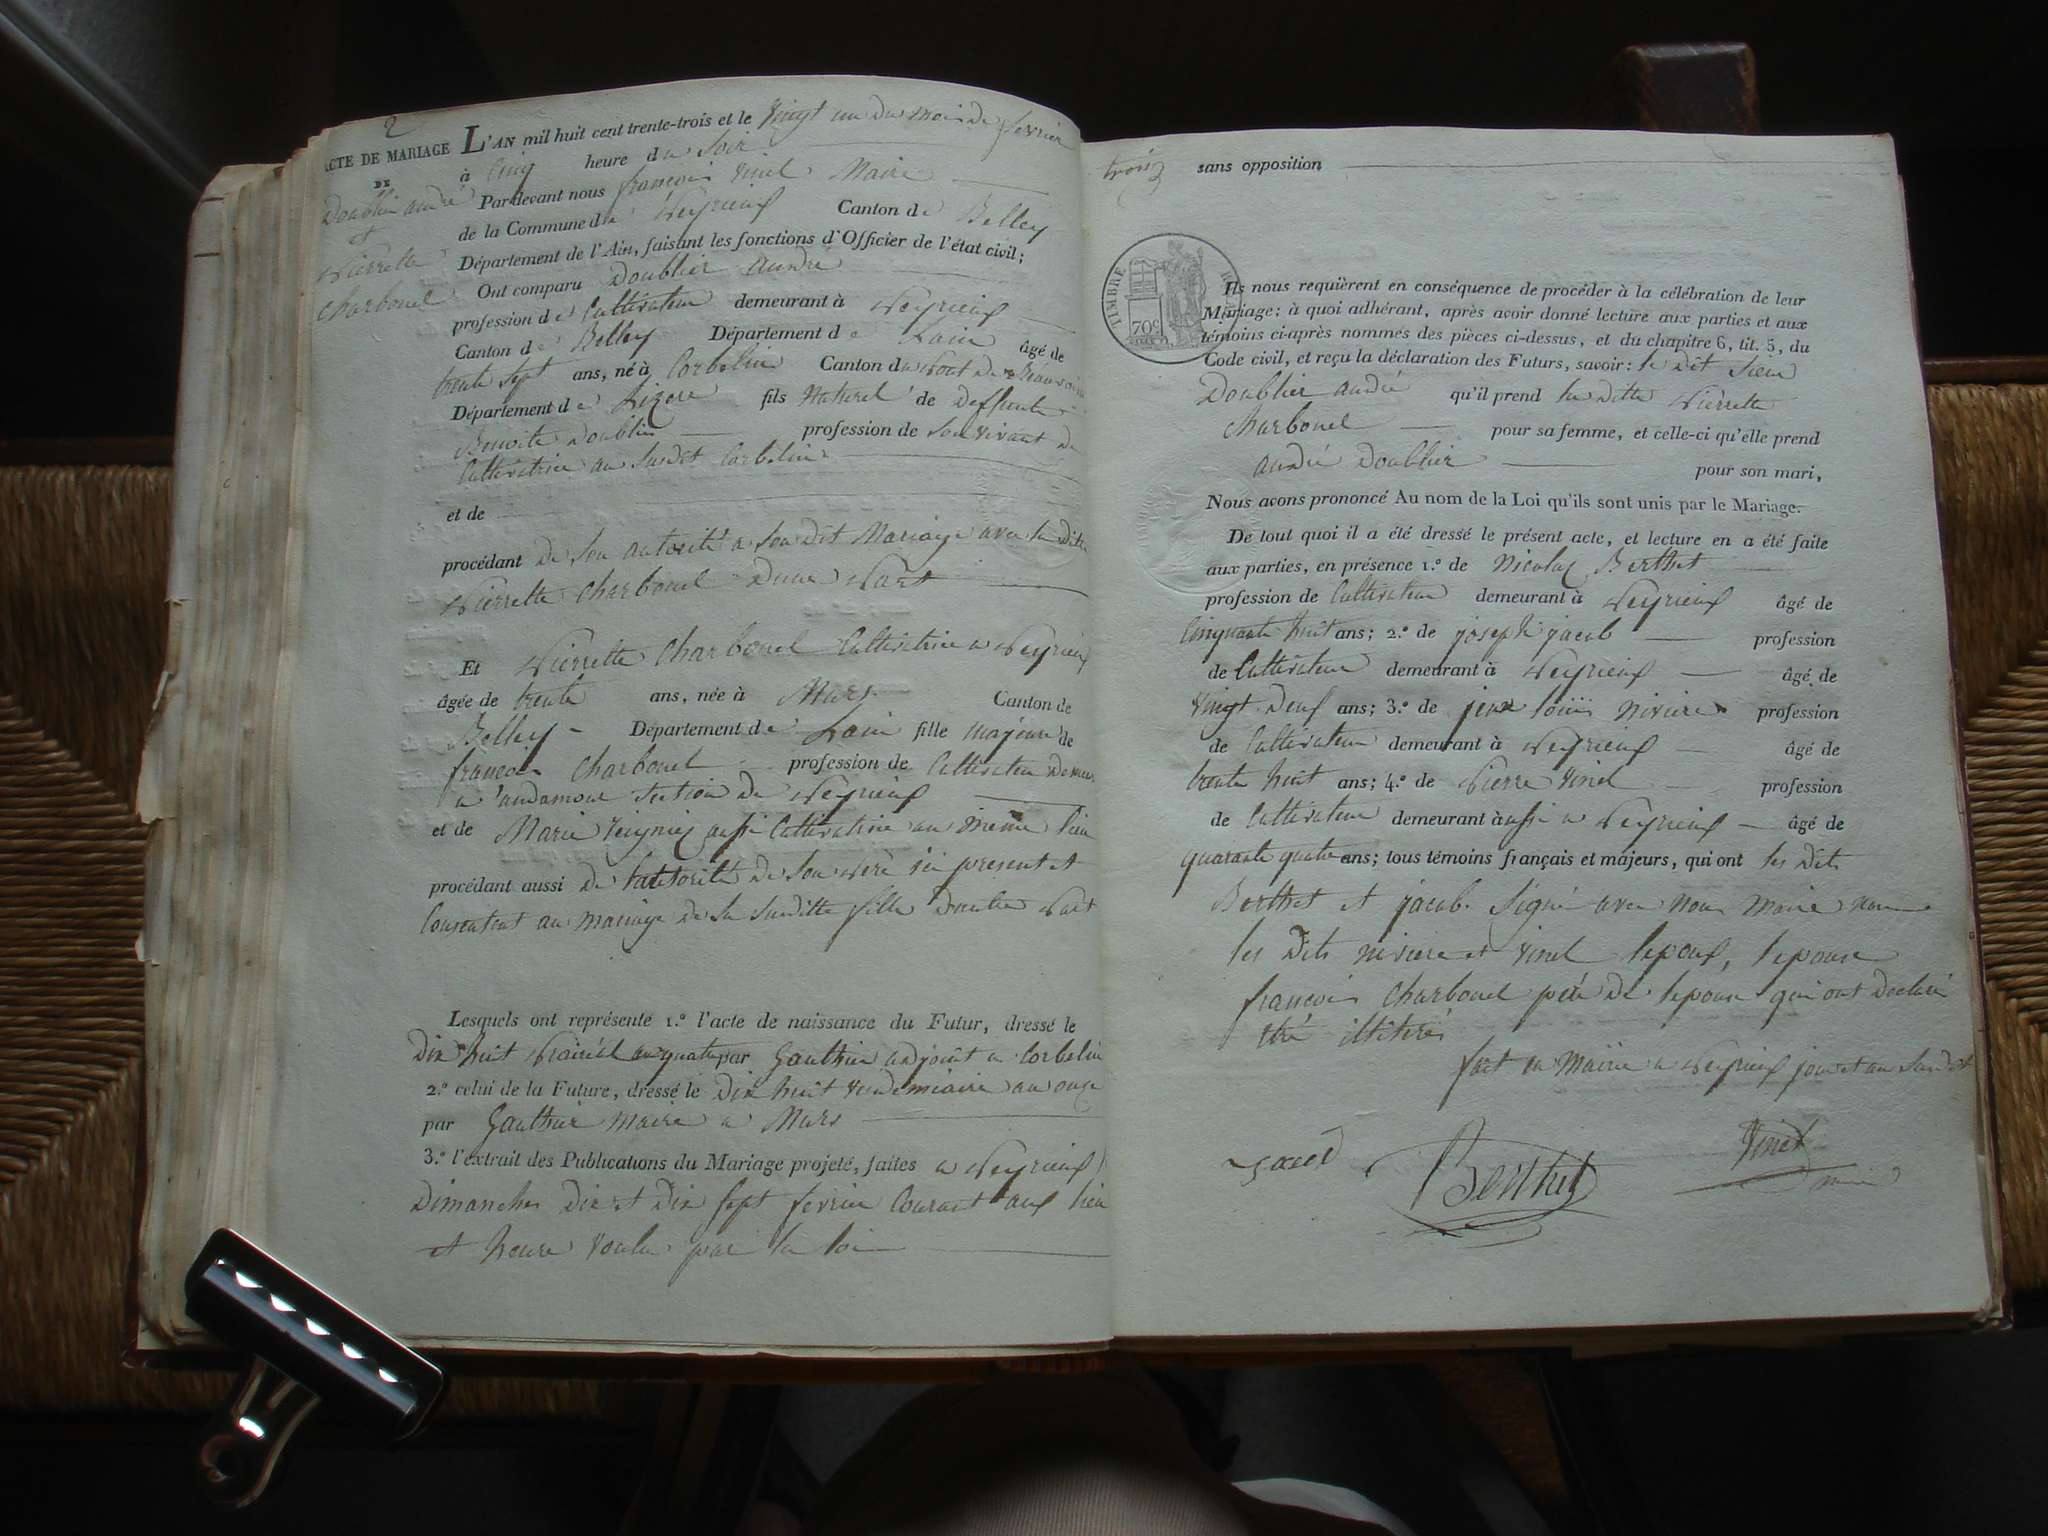 2
ACTE DE MARIAGE
DE
Doublier andré
et
Pierrette
Charbonel
L'AN mil huit cent trente-trois et le vingt un du mois de fevrier
à Cinq heure du Soir
Pardevant nous françois Vinel Maire
de la Commune de Peyrieux Canton de Belley
Département de l'Ain, faisant les fonctions d'Officier de l'état civil;
Ont comparu Doublier André
profession de Cultivateur demeurant à Peyrieux
Canton de Belley Département de Lain âgé de
trente sept ans, né à Corbelin Canton du Pont de Beauvoisin
Département de Lizere fils Naturel de Deffunte
Benoite Doublier profession de Son vivant de
Cultivatrice au Susdit Corbelin
et de
procédant de Son autorité a Son dit Mariage avec la ditte
Pierrette Charbonel Dune Part
Et Pierrette Charbonel Cultivatrice a Peyrieux
âgée de trente ans, née à Murs Canton de
Belley Département de Lain fille majeure de
françois Charbonel profession de Cultivateur Demeur
a andamour Section de Peyrieux
et de Marie aussi Cultivatrice au Meme lieu
procédant aussi de lautorité de Son Pere ici present et
Consentant au mariage de Sa Susditte fille Dautre Part
Lesquels ont représenté 1.º l'acte de naissance du Futur, dressé le
Dix huit Prairial an quatre par Gauthier adjoint a Corbelin
2.º celui de la Future, dressé le Dix huit Vendemiaire an onze
par Gauthier Maire a Murs
3.º l'extrait des Publications du Mariage projeté, faites a Peyrieux
Dimanches Dix et Dix Sept fevrier Courant aux lieu
et heure Voulu par la loi
trois sans opposition
TIMBRE ROYAL
70c
Ils nous requièrent en conséquence de procéder à la célébration de leur
Mariage; à quoi adhérant, après avoir donné lecture aux parties et aux
témoins ci-après nommés des pièces ci-dessus, et du chapitre 6, tit. 5, du
Code civil, et reçu la déclaration des Futurs, savoir: le Dit Sieur
Doublier andré qu'il prend la ditte Pierrette
Charbonel pour sa femme, et celle-ci qu'elle prend
André Doublier pour son mari,
Nous avons prononcé Au nom de la Loi qu'ils sont unis par le Mariage.
De tout quoi il a été dressé le présent acte, et lecture en a été faite
aux parties, en présence 1.º de Nicolas Berthet
profession de Cultivateur demeurant à Peyrieux âgé de
Cinquante huit ans; 2.º de joseph jacob profession
de Cultivateur demeurant à Peyrieux âgé de
Vingt Deux ans; 3.º de jean louis Niviere profession
de Cultivateur demeurant à Peyrieux âgé de
trente huit ans; 4.º de Pierre Vinel profession
de Cultivateur demeurant à aussi a Peyrieux âgé de
quarante quatre ans; tous témoins français et majeurs, qui ont les Dits
Berthet et jacob Signé avec nous Maire non
les Dits niviere et Vinel lepoux, lepouse
françois Charbonel père de lepouse qui ont Declaré
etre illiterés
fait en Mairie a Peyrieux jour et an Susdit
jacob
Berthet
Vinel
maire